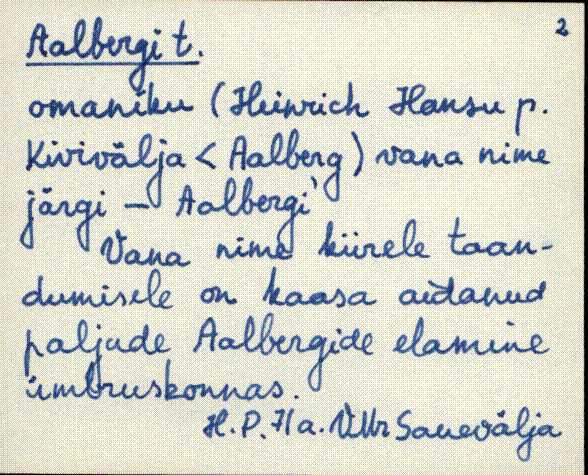 2
Aalbergi t.
omaniku (Heinrich Hansu p.
Kivivälja < Aalberg) vana nime
järgi — Aalbergi'
Vana nime kiirele taan-
dumisele on kaasa aidanud
paljude Aalbergide elamine
ümbruskonnas.
H. P. 71a. Sauevälja